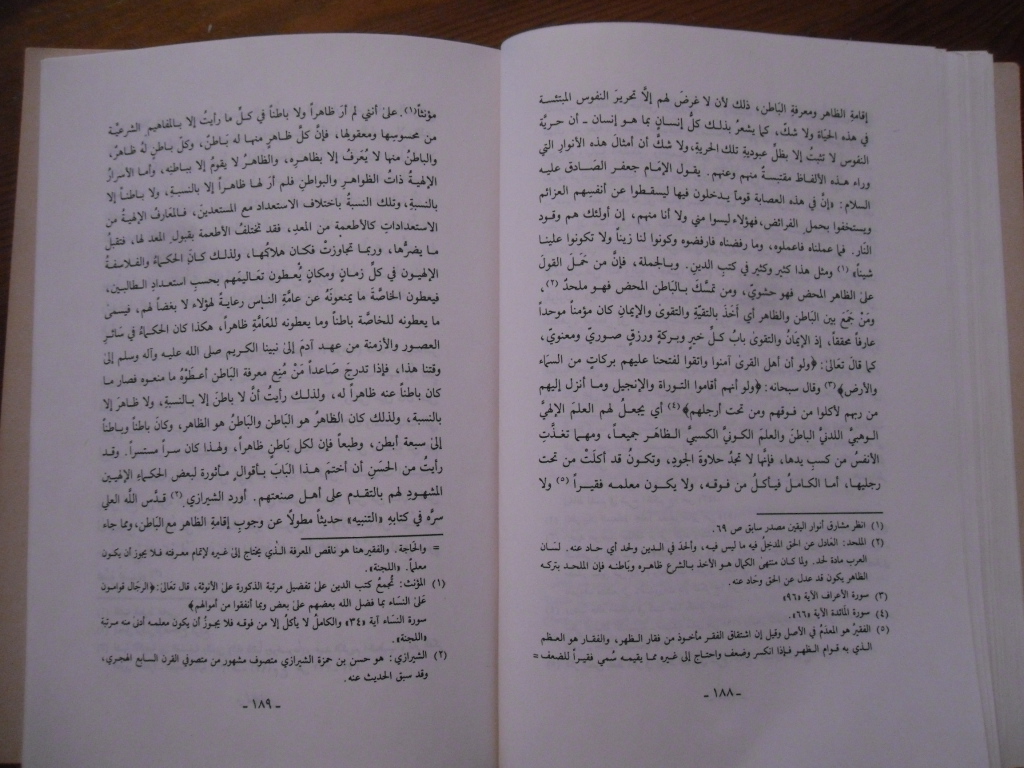 إقامةِ الظاهر ومعرفةِ البَاطن، ذلك لأن لا غَرضَ لهم إلَّا تحريرَ النفوس المبتئسة
في هذه الحَيَاة ولا شكَّ، كما يشعرُ بذلك كلُّ إنسانٍ بما هو إنسان - أن حريَّة
النفوس لا تثبتُ إلا بظلِّ عبوديةِ تلك الحريةِ، ولا شكَّ أن أمثالَ هذه الأنوارِ التي
وراء هذه الألفاظ مقتبسةٌ منهم وعنهم. يقول الإمَام جعفر الصَّادق عليه
السلام: «إنَّ في هذه العصابة قوماً يدخلون فيها ليسقطوا عن أنفسِهم العزائم
ويستخفوا بحملِ الفرائض، فهؤلاء ليسوا مني ولا أنا منهم، إن أولئك هم وقود
النَّار. فما عملناه فاعملوه، وما رفضناه فارفضوه وكونوا لنا زيناً ولا تكونوا علينا
شيناً» (١) ومثل هذا كثير وكثير في كتبِ الدين. وبالجملة، فإنَّ من حَمَلَ القولَ
على الظاهر المحض فهو حشويّ، ومن تمسَّكَ بالبَاطن المحض فهو ملحدٌ (٢)،
ومَنْ جَمَعَ بين البَاطن والظاهر أي أخذَ بالتقيَّةِ والتقوى والإيمانِ كان مؤمناً موحداً
عارفاً محققاً، إذ الإيمَانُ والتقوى بابُ كلِّ خيرٍ وبركةٍ ورزقٍ صوريّ ومعنويّ،
كما قالَ تعَالىَ: ﴿ولو أن أهل القرى آمنوا واتقوا لفتحنا عليهم بركاتٍ من السمَاء
والأرض﴾ (٣) وقال سبحانه: ﴿ولو أنهم أقاموا التوراة والإنجيل وما أنزل إليهم
من ربهم لأكلوا من فوقهم ومن تحت أرجلهم﴾ (٤) أي يجعلُ لهم العلمَ الإلهيَّ
الوهبيَّ اللدنيَّ الباطنَ والعلمَ الكونيَّ الكسبيَّ الظاهرَ جميعاً، ومهما تغذَّتِ
الأنفسُ من كسبِ يدها، فإنَّها لا تجدُ حلاوةَ الجودِ، وتكونُ قد أكلتْ من تحت
رجليها، أما الكاملُ فيأكلُ من فوقه، ولا يكون معلمه فقيراً (٥) ولا
(١) انظر مشارق أنوار اليقين مصدر سابق ص ٦٩.
(٢) الملحد: العَادل عن الحق المدخِلُ فيه ما ليس فيه، وألحدَ في الدين ولحد أي حاد عنه. لسَان
العرب مادة لحد. ولما كان منتهىَ الكمال هو الأخذ بالشرع ظاهره وبَاطنه فإن الملحد بتركه
الظاهر يكون قد عدل عن الحق وحَاد عنه.
(٣) سورة الأعراف الآية «٩٦»
(٤) سورة المَائدة الآية «٦٦».
(٥) الفقيرُ هو المعدَمُ في الأصل وقيل إن اشتقاق الفقر مأخوذ من فقار الظهر، والفقار هو العظم
الذي به قوام الظهر فإذا انكسر وضعف واحتاج إلى غيره مما يقيمه سُمي فقيراً للضعف =
- ١٨٨ -
مؤنثاً (١). علىَ أنني لم أرَ ظاهراً ولا باطناً في كلِّ ما رأيتُ إلا بالمفاهيم الشرعيَّة
من محسوسِها ومعقولِها، فإنَّ كلَّ ظاهرٍ منها له بَاطنٌ، وكلّ باطنٍ لهُ ظاهرٌ،
والباطنُ منها لا يُعَرفُ إلا بظاهرِه، والظاهرُ لا يقومُ إلا بباطنِه، وأما الأسرارُ
الإلهيةُ ذاتُ الظواهرِ والبواطنِ فلم أرَ لها ظاهراً إلا بالنسبةِ، ولا باطناً إلا
بالنسبةِ، وتلك النسبةُ باختلاف الاستعداد مع المستعدينَ، فالمَعَارفُ الإلهيةُ من
الاستعداداتِ كالأطعمةِ من المعدِ، فقد تختلفُ الأطعمة بقبولِ المعد لها، فتقبلُ
ما يضرُّها، وربما تجاوزتْ فكان هلاكُها، ولذلك كانَ الحكماءُ والفلاسفةُ
الإلهيون في كلِّ زمانٍ ومكانٍ يُعطون تعَاليمَهم بحسبِ استعدادِ الطالبين،
فيعطون الخاصَّةَ ما يمنعونَهُ عن عامَّةِ الناس رعايةً لهؤلاء لا بغضاً لهم، فيسمىَ
ما يعطونه للخاصَّة باطناً وما يعطونه للعَامَّةِ ظاهراً، هكذا كان الحكماءُ في سَائرِ
العصور والأزمنة من عهد آدمَ إلى نبينا الكريم صلى الله عليه وآله وسلم إلى
وقتنا هذا، فإذا تدرجَ صَاعداً مَنْ مُنِع معرفة البَاطن أعطَوْهُ ما منعوه فصار ما
كان باطناً عنه ظاهراً له، ولذلك رأيتُ أنْ لا باطنَ إلا بالنسبةِ، ولا ظاهرَ إلا
بالنسبة، ولذلك كان الظاهرُ هو البَاطن والبَاطنُ هو الظاهر، وكانَ باطناً وباطناً
إلى سبعة أبطن، وطبعاً فإن لكل بَاطنٍ ظاهراً، ولهذا كان سراً مستراً. وقد
رأيتُ من الحسَنِ أن أختمَ هذا البَابَ بأقوالٍ مأثورة لبعض الحكماءِ الإلهيين
المشهودِ لهم بالتقدم على أهلِ صنعتهم. أورد الشيرازي (٢) قدَّس اللَّه العلي
سرَّه في كتابهِ «التنبيه» حديثاً مطولاً عن وجوبِ إقامةِ الظاهر معَ البَاطن، ومما جاء
= والحَاجة. والفقيرهنا هو ناقص المعرفة الذَّي يحتاج إلىَ غيره لإتمام معرفته فلا يجوز أن يكون
معلماً. «اللجنة».
(١) المؤنث: تُجمعُ كتب الدين علىَ تفضيل مرتبة الذكورة علىَ الأنوثة. قال تعَالىَ: ﴿الرجَال قوامون
علىَ النسَاء بما فضل الله بعضهم علىَ بعض وبما أنفقوا من أموالهم﴾
سورة النسَاء آية «٣٤» والكاملُ لا يأكلُ إلا من فوقه فلا يجوزُ أن يكون معلمه أدنىَ منه مرتبة
«اللجنة».
(٢) الشيرازي: هو حسن بن حمزة الشيرازي متصوف مشهور من متصوفي القرن السابع الهجري،
وقد سبق الحديث عنه.
- ١٨٩ -